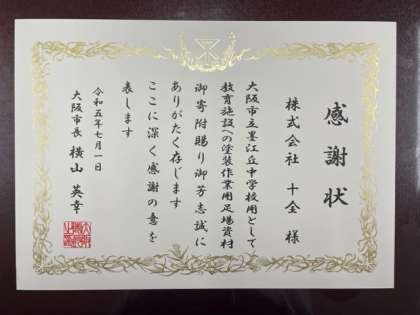 感謝状
株式会社 十全 様
大阪市立墨江丘中学校用として
教育施設への塗装作業用足場資材
御寄附賜り御芳志誠に
ありがたく存じます
ここに深く感謝の意を
表します
令和五年七月一日
大阪市長 横山 英幸